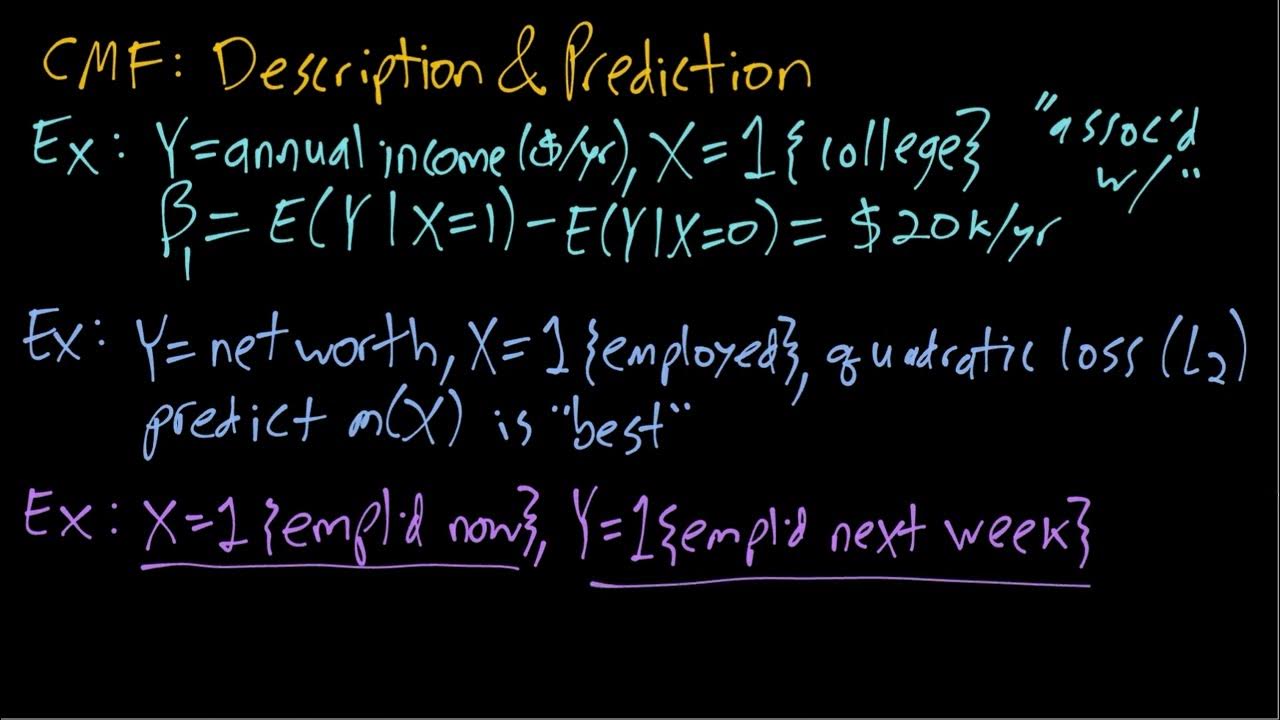 CMF: Description & Prediction
Ex: Y=annual income ($/yr), X=1{college} "assoc'd w/"
β₁= E(Y|X=1)-E(Y|X=0)= $20k/yr
Ex: Y=net worth, X=1{employed}, quadratic loss (L₂)
predict m(X) is "best"
Ex: X=1{empl'd now}, Y=1{empl'd next week}